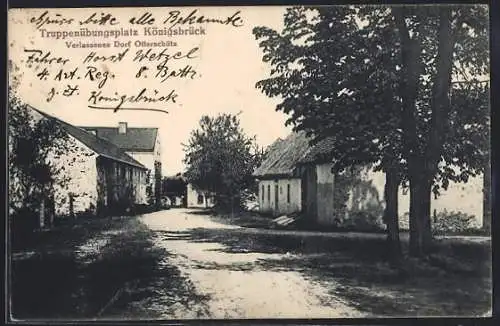 Grüsse bitte alle Bekannte
Truppenübungsplatz Königsbrück
Verlassenes Dorf Otterschütz
Fahrer Horst Wetzel
4. Art. Reg. 8. Batt.
z. Zt. Königsbrück